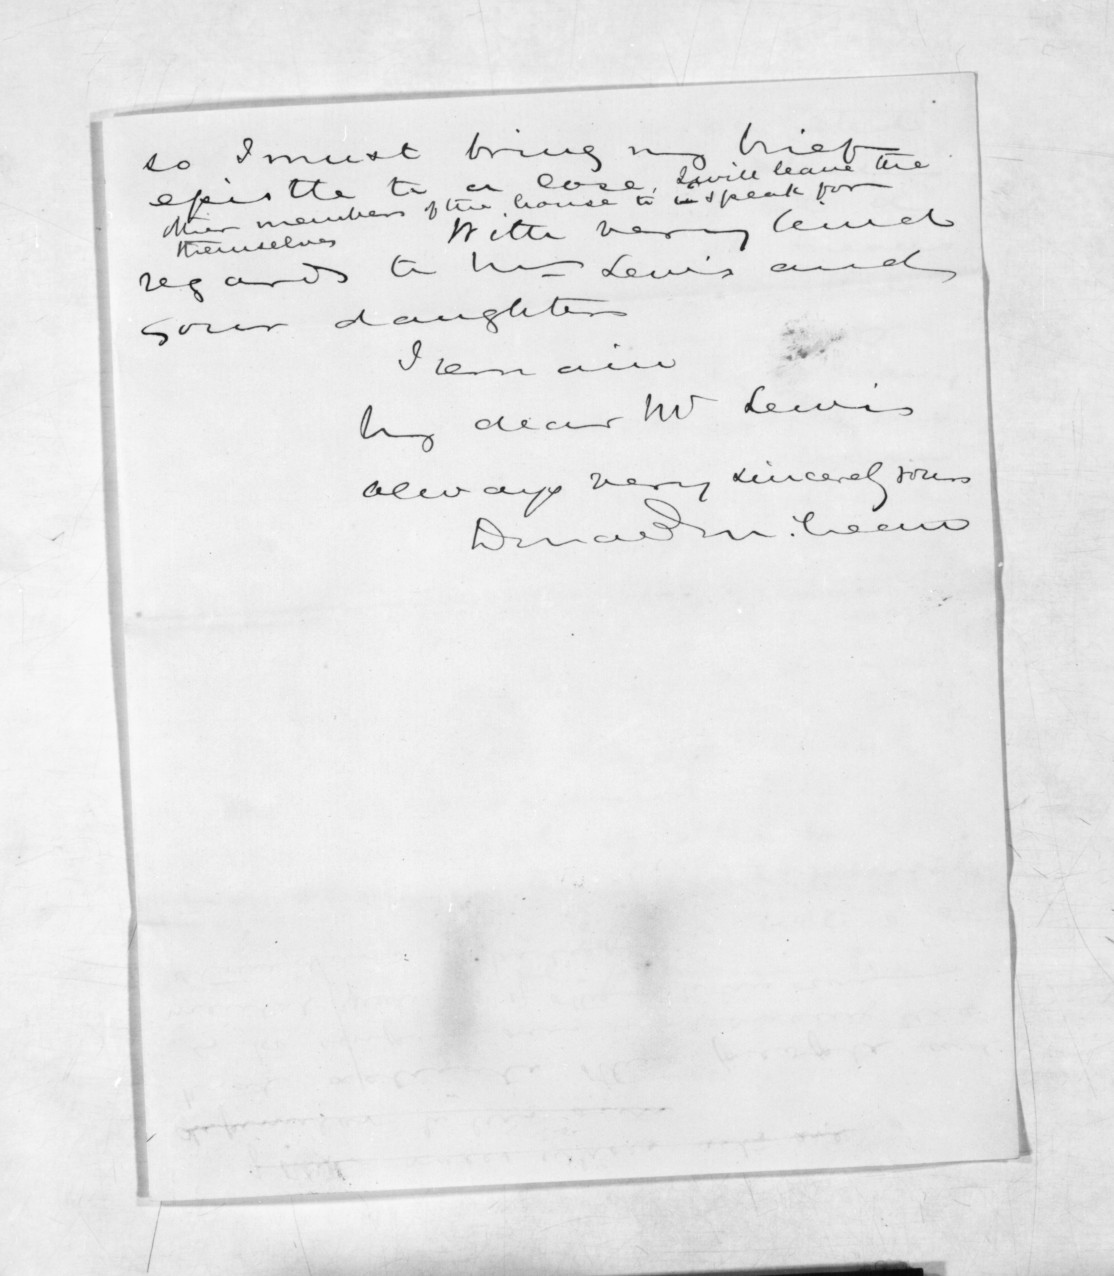 so I must bring my brief
epistle to a close. I will leave the
other members of the house to speak for
themselves With very kind
regards to Mrs Lewis and
your daughters
I remain
My dear Mr Lewis
always very sincerely yours
Donald McLean